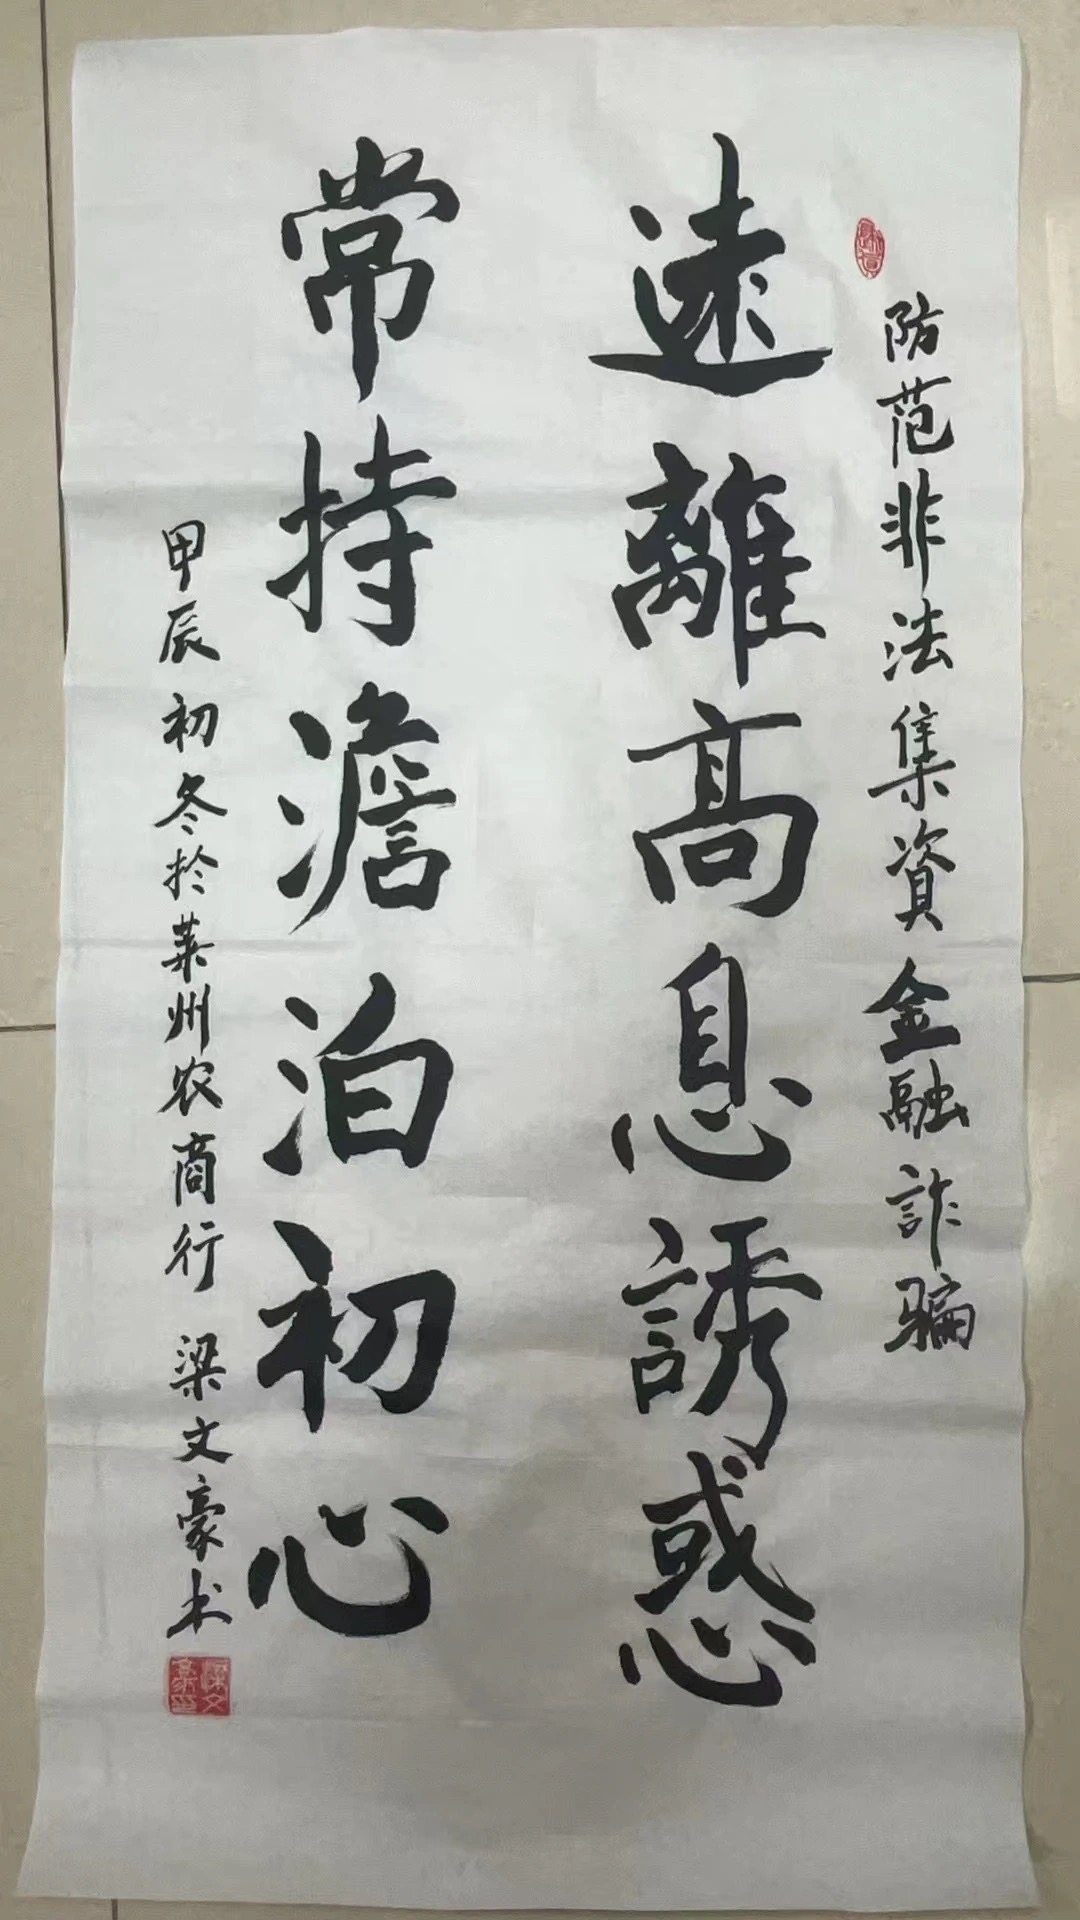 防范非法集資金融詐骗
远離高息誘惑
常持澹泊初心
甲辰初冬於莱州农商行 梁文豪书